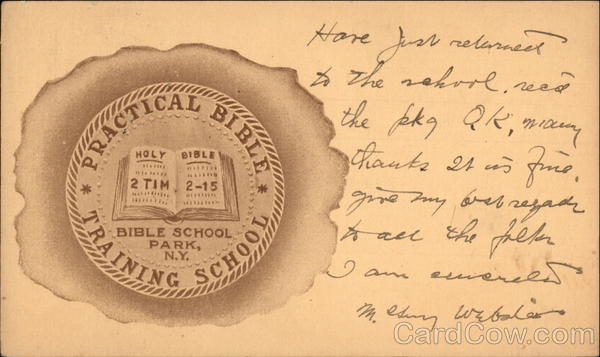 PRACTICAL BIBLE
TRAINING SCHOOL
HOLY BIBLE
2 TIM 2-15
BIBLE SCHOOL
PARK,
N.Y.
Have just returned
to the school. rec'd
the pkg O.K, many
thanks It is fine,
give my best regards
to all the folks
I am
M.
CardCow.com